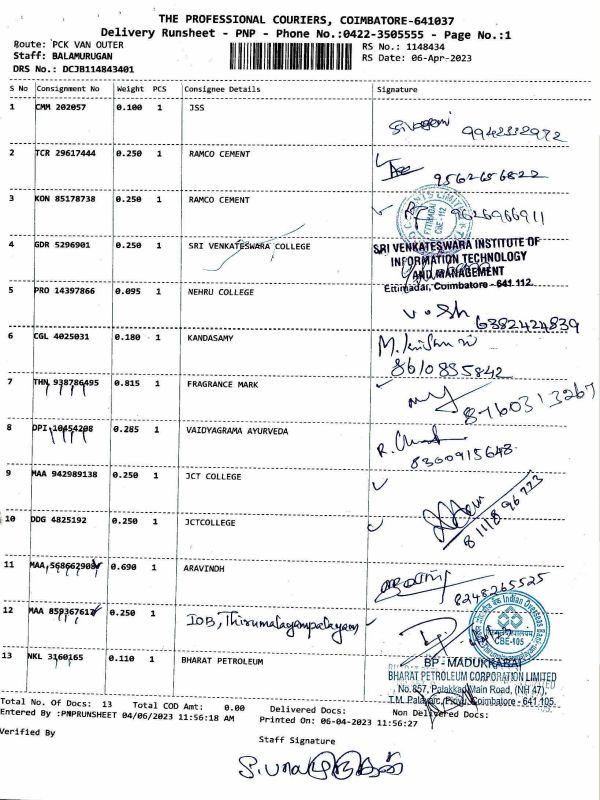 THE PROFESSIONAL COURIERS, COIMBATORE-641037
Delivery Runsheet - PNP - Phone No.:0422-3505555 - Page No.:1
Route: PCK VAN OUTER
RS No.: 1148434
Staff: BALAMURUGAN
RS Date: 06-Apr-2023
DRS No.: DCJB114843401
S No Consignment No Weight PCS Consignee Details Signature
1 CMM 202057 0.100 1 JSS
9942332972
2 TCR 29617444 0.250 1 RAMCO CEMENT
9562656822
3 KON 85178738 0.250 1 RAMCO CEMENT
9626966911
4 GDR 5296901 0.250 1 SRI VENKATESWARA COLLEGE
SRI VENKATESWARA INSTITUTE OF
INFORMATION TECHNOLOGY
AND MANAGEMENT
Ettimadai, Coimbatore - 641 112.
5 PRO 14397866 0.095 1 NEHRU COLLEGE
6382424839
6 CGL 4025031 0.180 1 KANDASAMY
8610835842
7 THN 938786495 0.815 1 FRAGRANCE MARK
8760313267
8 DPI 10454208 0.285 1 VAIDYAGRAMA AYURVEDA
8300915648
9 MAA 942989138 0.250 1 JCT COLLEGE
10 DDG 4825192 0.250 1 JCTCOLLEGE
8111896773
11 MAA 0.690 1 ARAVINDH
8248265525
12 MAA 0.250 1 IOB, Thirumalayampalayam
CBE-105
13 NKL 3160165 0.110 1 BHARAT PETROLEUM
BP - MADUKKARAI
BHARAT PETROLEUM CORPORATION LIMITED
No.857, Palakkad Main Road, (NH 47),
Coimbatore - 641 105.
Total No. Of Docs: 13 Total COD Amt: 0.00 Delivered Docs: Non Delivered Docs:
Entered By :PNPRUNSHEET 04/06/2023 11:56:18 AM Printed On: 06-04-2023 11:56:27
Verified By
Staff Signature